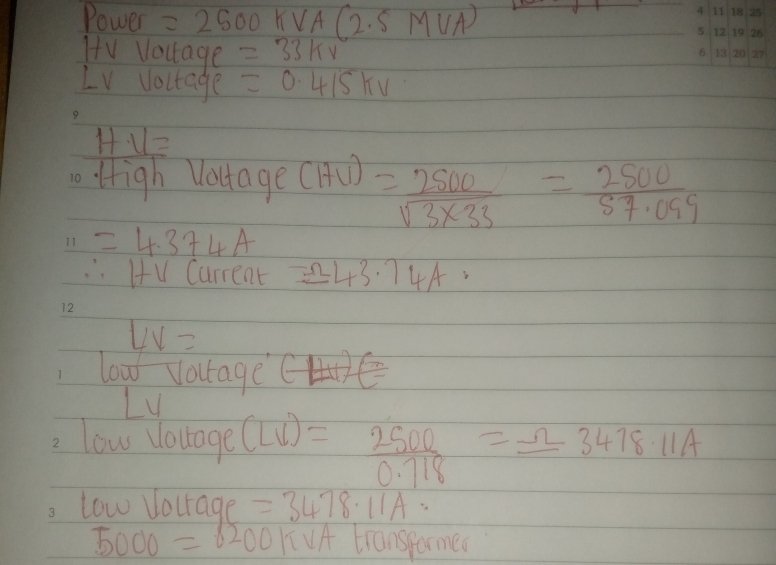 4 11 18 25
5 12 19 26
6 13 20 27
Power = 2500 KVA (2.5 MVA)
HV Voltage = 33KV
LV Voltage = 0.415KV
9
H.V=
10 High Voltage (HV) = 2500 / √3×33 = 2500 / 57.099
11 = 4.374A
∴ HV Current = 43.74A.
12
LV =
1 low Voltage (HV) (=
LV
2 low Voltage (LV) = 2500 / 0.718 = 3478.11A
3 low Voltage = 3478.11A.
5000 = 6200KVA transformer